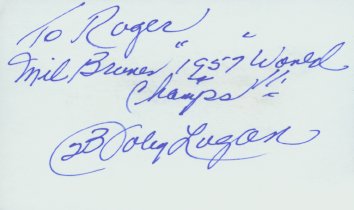 To Roger
Mil Braves "1957" World
Champs"
2B Johnny Logan